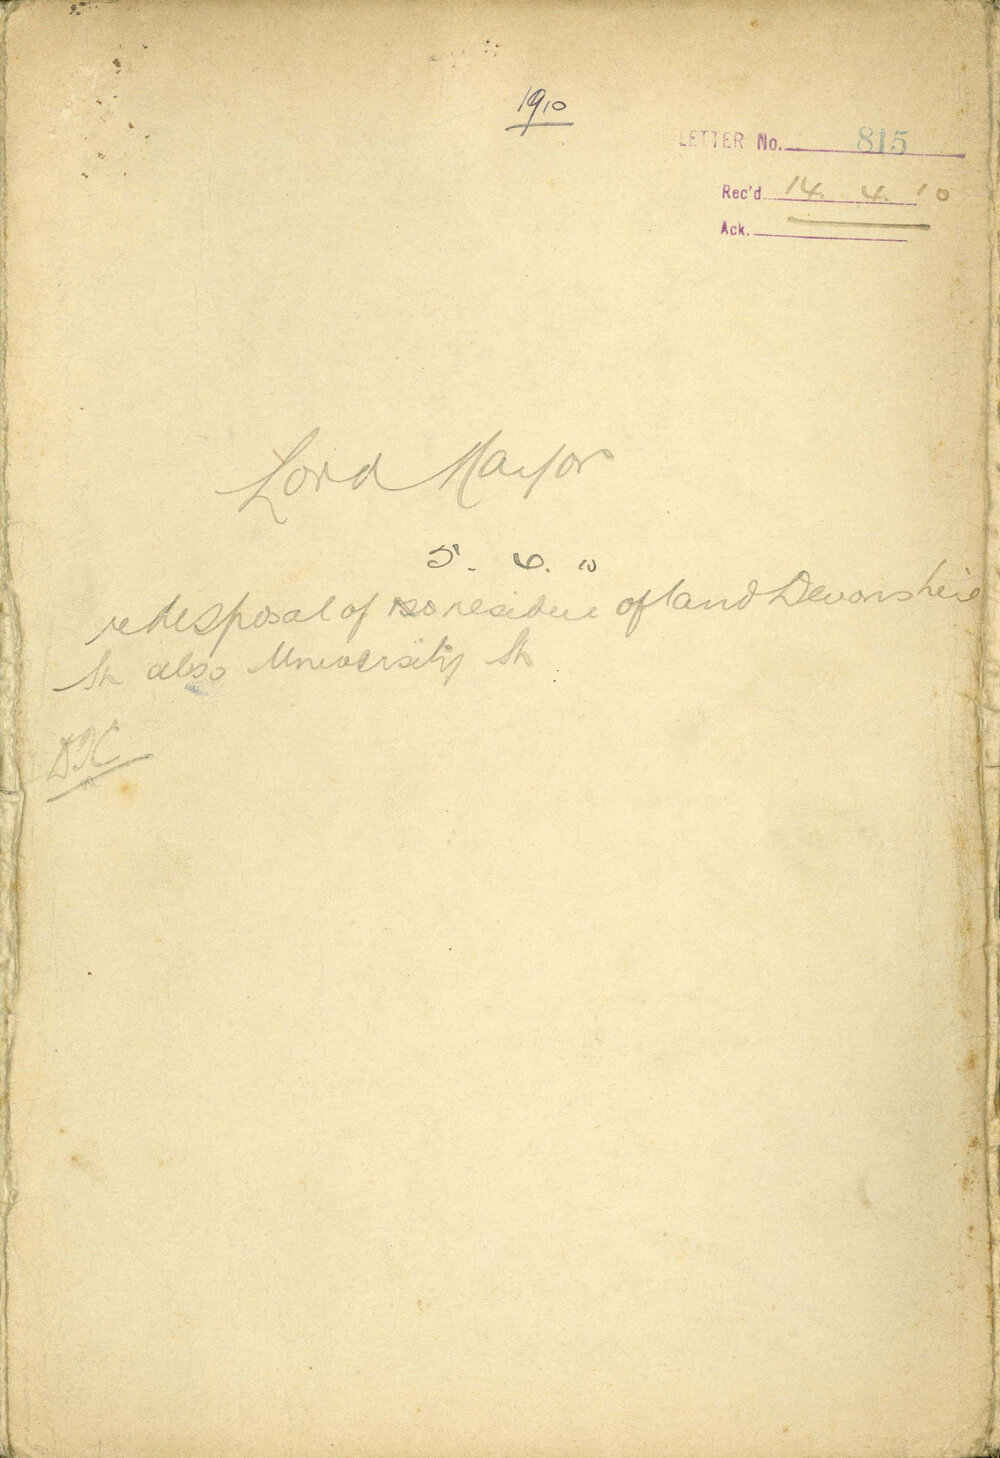 1910
LETTER No. 815
Rec'd 14. 4. '10
Ack.
Lord Mayor
5. 4. 10
re disposal of residue of land Devonshire
St also University St